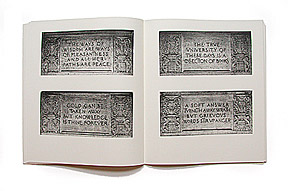 THE WAYS OF
WISDOM ARE WAYS
OF PLEASANTNESS
AND ALL HER
PATHS ARE PEACE
GOLD CAN BE
TAKEN AWAY
BUT KNOWLEDGE
IS THINE FOREVER
THE TRUE
UNIVERSITY OF
THESE DAYS IS A
COLLECTION OF BOOKS
A SOFT ANSWER
TURNETH AWAY WRATH
BUT GRIEVOUS
WORDS STIR UP ANGER